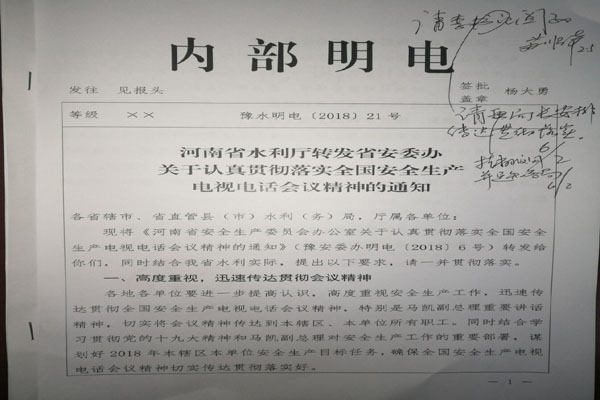 内部明电
发往 见报头
签批
盖章 杨大勇
等级 ××
豫水明电〔2018〕21号
河南省水利厅转发省安委办
关于认真贯彻落实全国安全生产
电视电话会议精神的通知
各省辖市、省直管县（市）水利（务）局，厅属各单位：
现将《河南省安全生产委员会办公室关于认真贯彻落实全国安全
生产电视电话会议精神的通知》（豫安委办明电〔2018〕6号）转发给
你们，同时结合我省水利实际，提出以下要求，请一并贯彻落实。
一、高度重视，迅速传达贯彻会议精神
各地各单位要进一步提高认识，高度重视安全生产工作，迅速传
达贯彻全国安全生产电视电话会议精神，特别是马凯副总理重要讲话
精神，切实将会议精神传达到本辖区、本单位所有职工。同时结合学
习贯彻党的十九大精神和马凯副总理对安全生产工作的重要部署，谋
划好2018年本辖区本单位安全生产目标任务，确保全国安全生产电视
电话会议精神切实传达贯彻落实好。
— 1 —